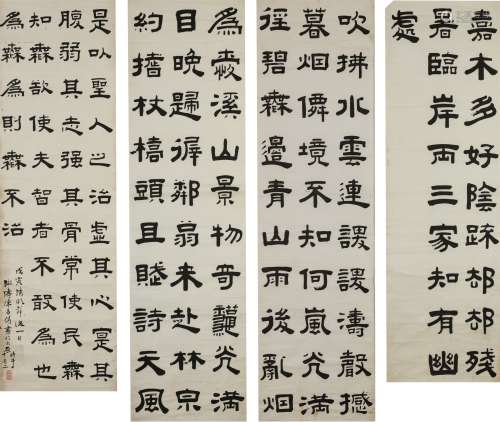 嘉木多好陰疎邨却殘
暑臨岸両三家知有幽
處
吹拂水雲連謖謖濤聲撼
暮烟僊境不知何嵐光滿
徑碧橆邊青山雨後亂烟
爲愛溪山景物奇光滿
目晚歸遲鄰翁來赴林泉
約攜杖橋頭且賦詩天風
是以聖人之治虛其心寔其
腹弱其志强其骨常使民橆
知橆欲使夫智者不敢爲也
爲橆爲則橆不治
戊寅清明前一日